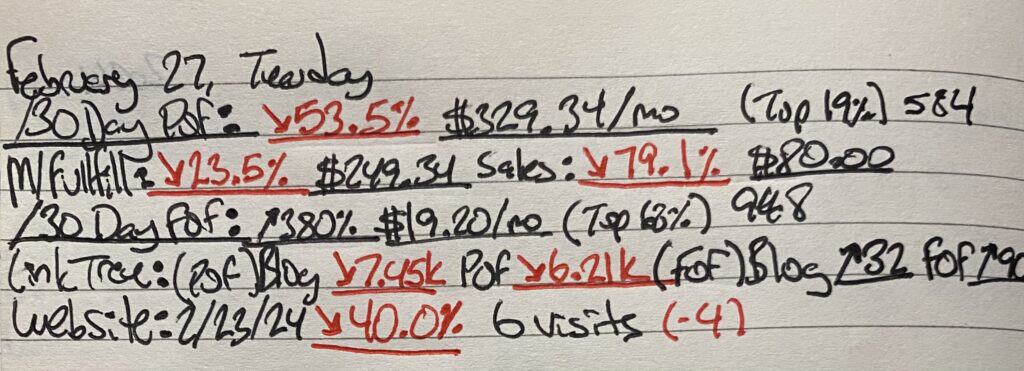 February 27, Tuesday
/30 Day PoF: ↘53.5% $329.34/mo (Top 19%) 584
M/Fullfill: ↘23.5% $249.34 Sales: ↘79.1% $80.00
/30 Day FoF: ↗380% $19.20/mo (Top 68%) 948
LinkTree: (PoF)Blog ↘7.45k PoF ↘6.21k (FoF)Blog ↗32 FoF ↗90
Website: 2/23/24 ↘40.0% 6 visits (-4)